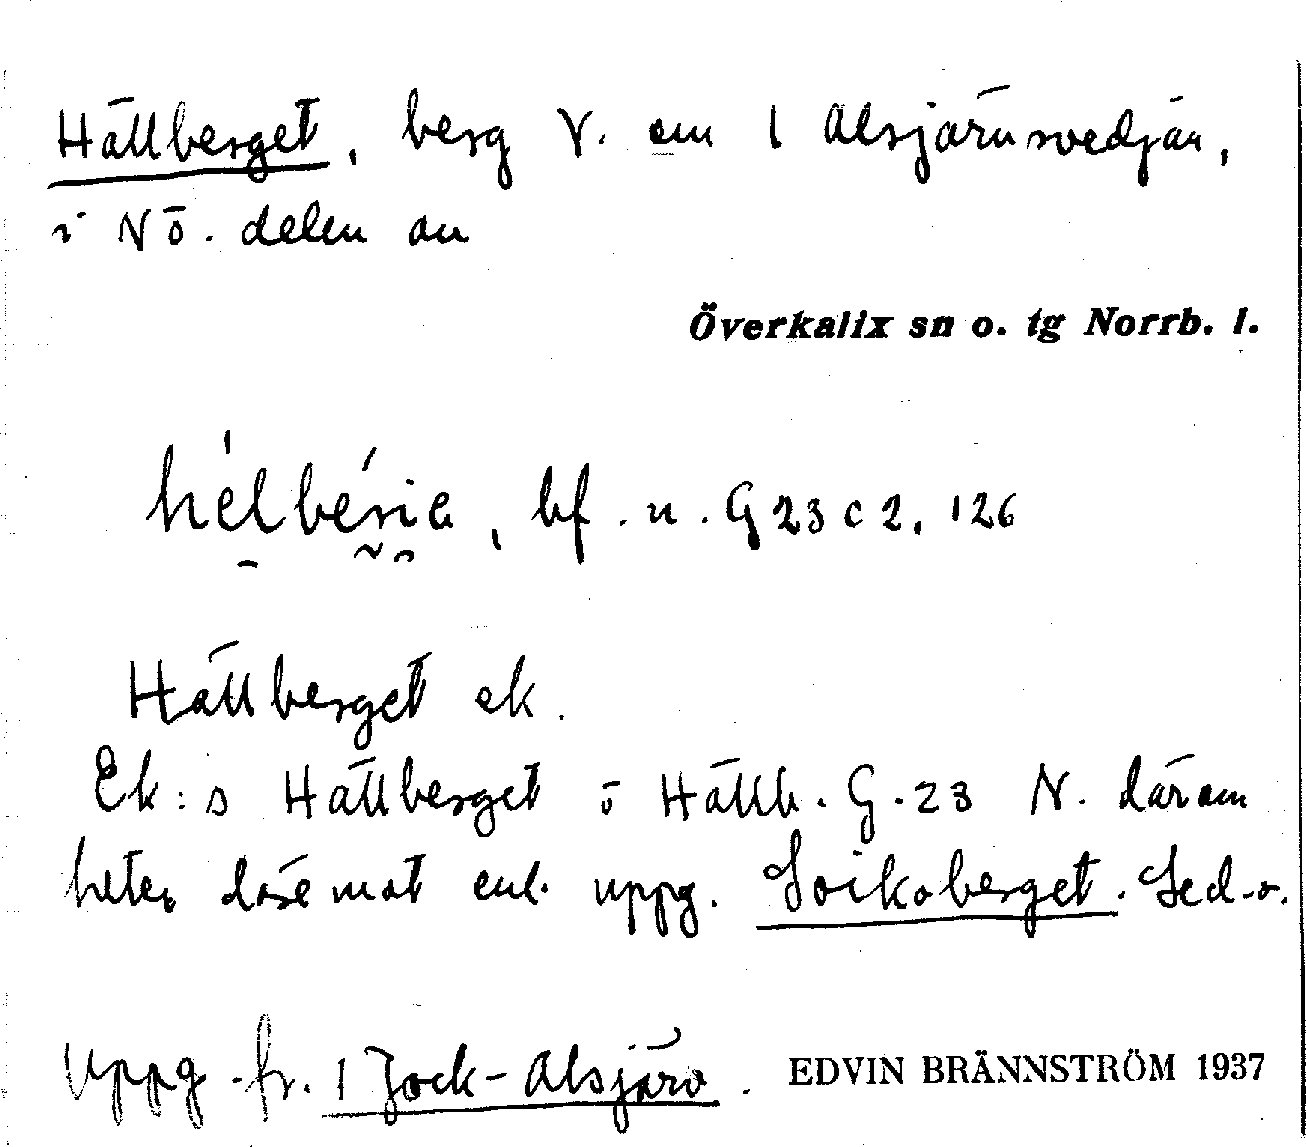 Hällberget, berg V. om 1 Alsjärnsvedjan,
i NÖ. delen av
Överkalix sn o. tg Norrb. l.
bf. n. G 23 c 2, 126
Hällberget ek.
Ek:s Hällberget o Hällb. G. 23 N. därom
heter däremot enl. uppg. Soikoberget. Se d.o.
Uppg. fr. 1 Jock-Alsjärv.
EDVIN BRÄNNSTRÖM 1937